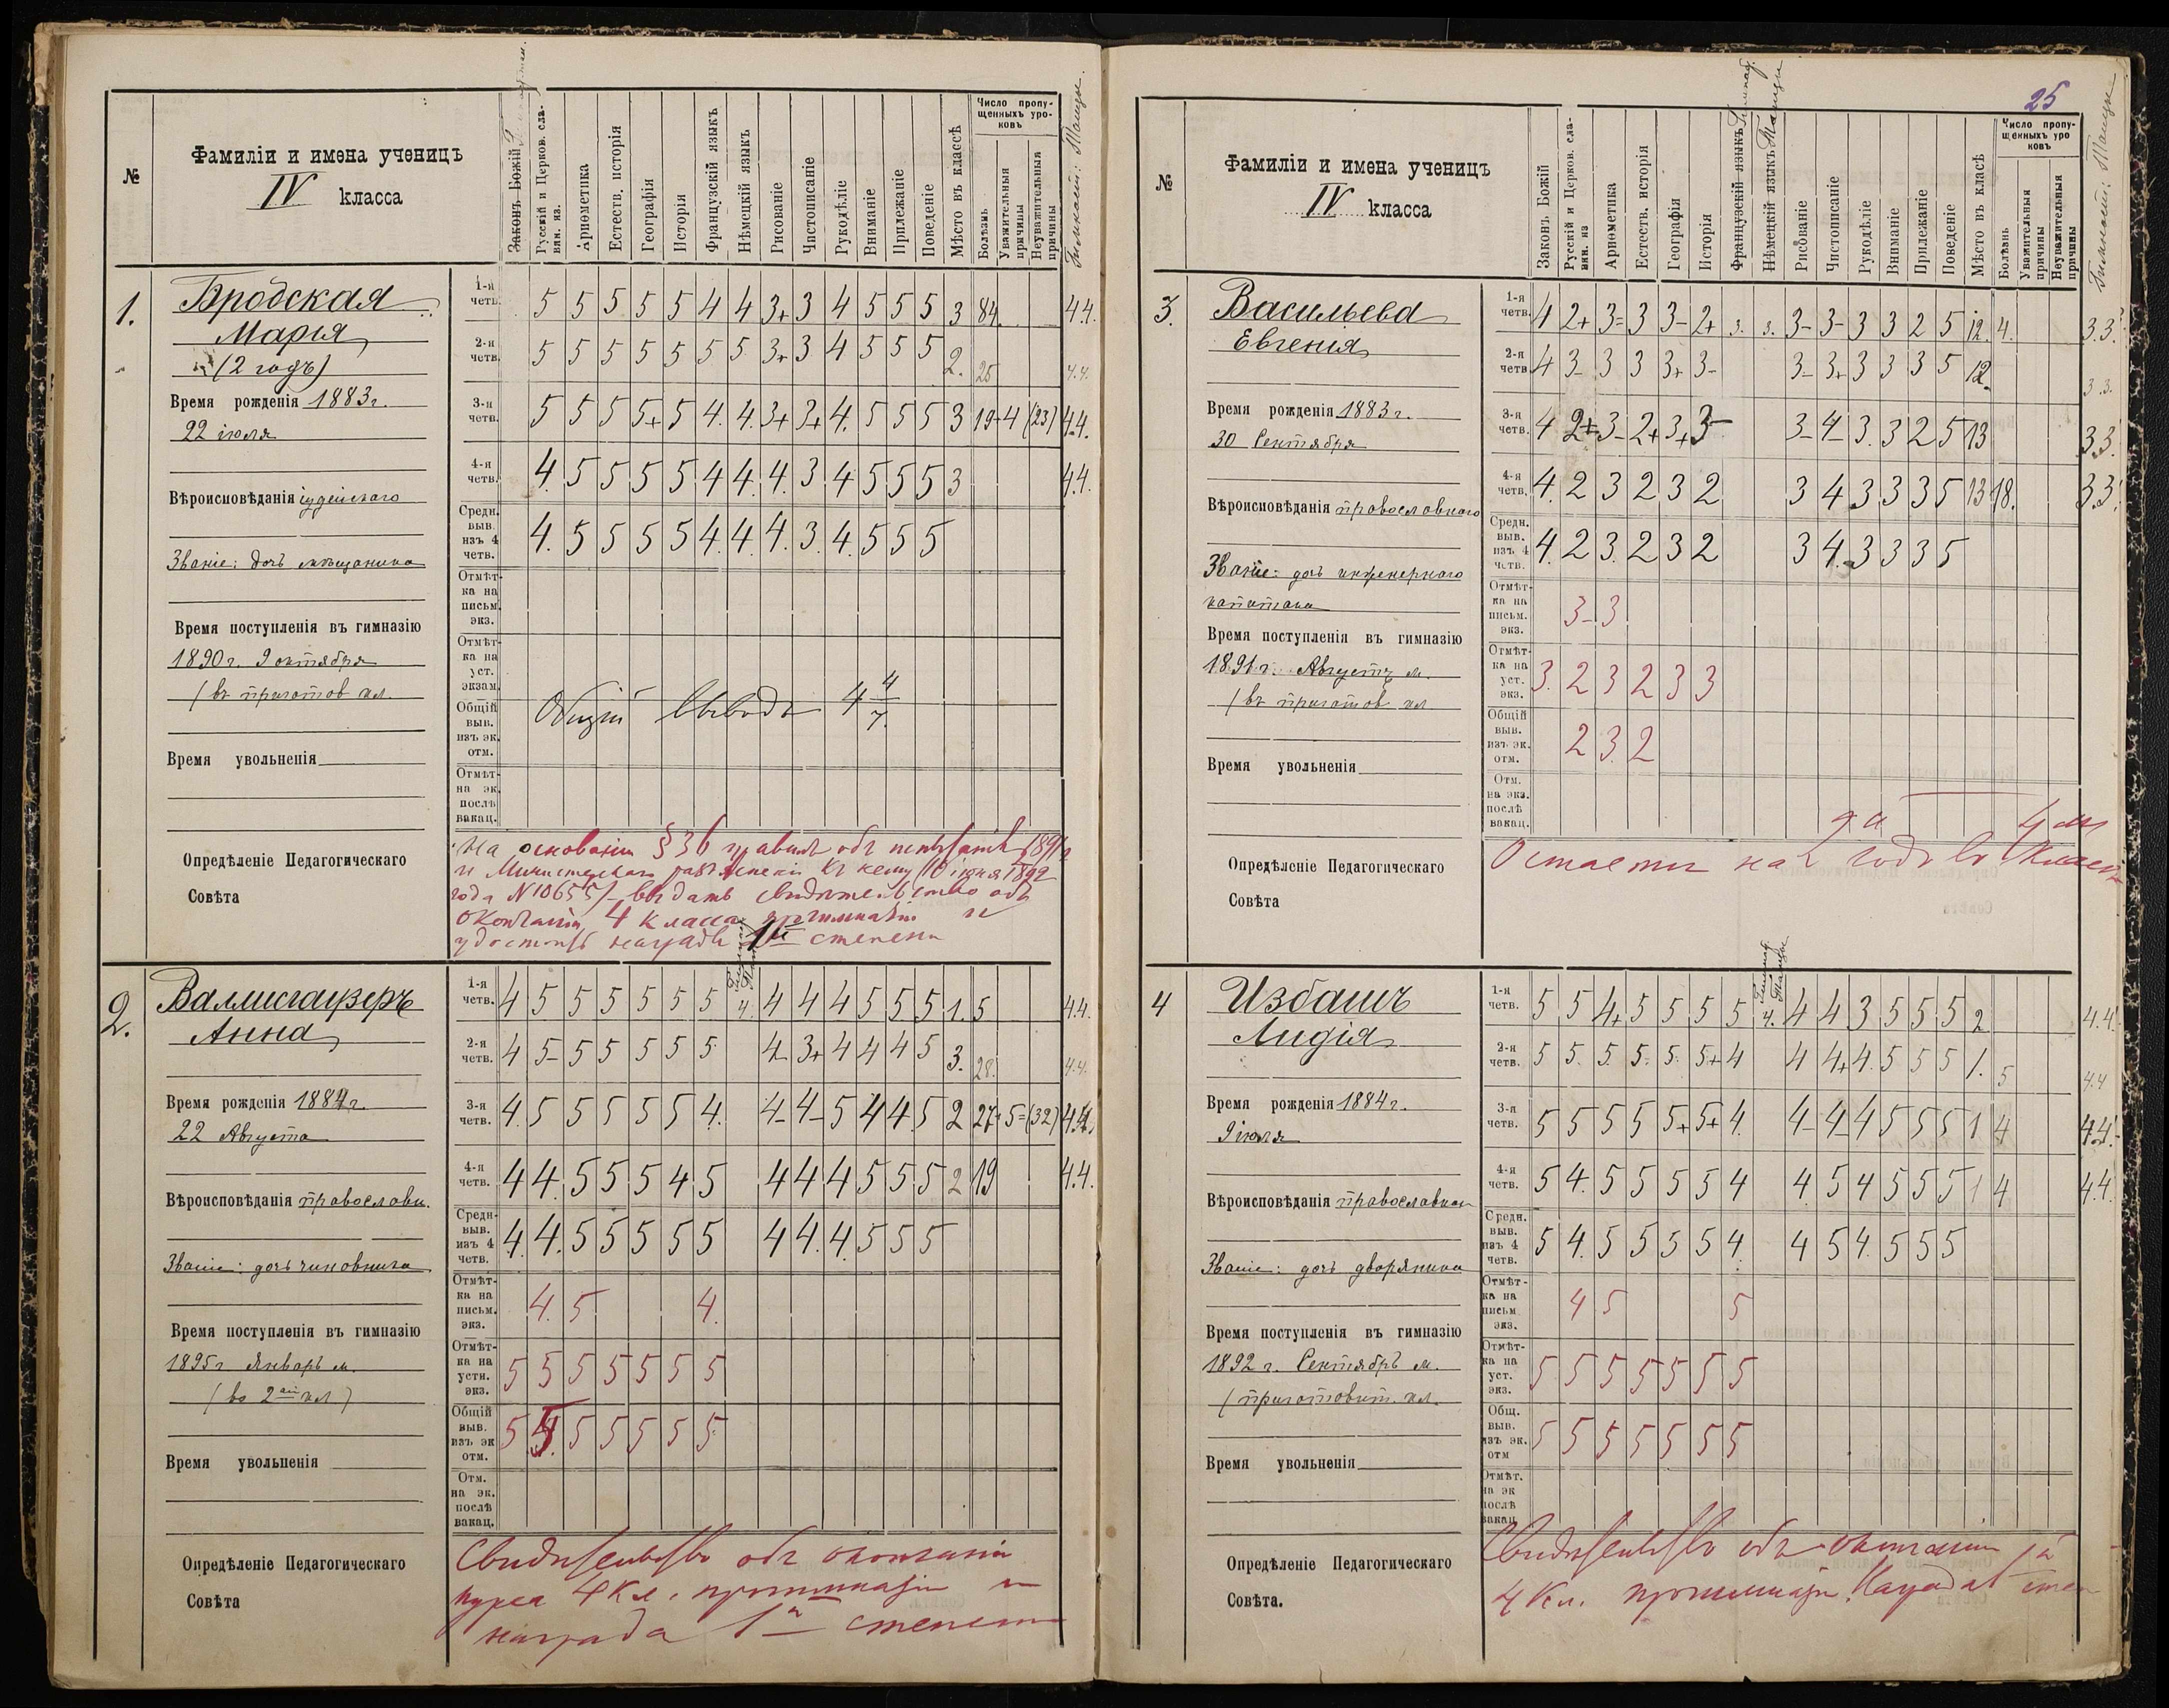 №
Фамиліи и имена ученицъ
IV класса
Законъ Божій
Русскій и Церков. сла-
вян. яз.
Ариѳметика
Естеств. исторія
Географія
Исторія
Французскій языкъ
Нѣмецкій языкъ
Рисованіе
Чистописаніе
Рукодѣліе
Вниманіе
Прилежаніе
Поведеніе
Мѣсто въ классѣ
Число пропу-
щенныхъ уро-
ковъ
Болѣзнь
Уважительныя
причины
Неуважительныя
причины
Гимнаст: Танцы.
1.
Бродская
Марія
(2 годъ)
Время рожденія 1883 г.
22 іюля
Вѣроисповѣданія іудейскаго
Званіе: дочь мѣщанина
Время поступленія въ гимназію
1890 г. 9 октября
(въ приготов кл.
Время увольненія
Опредѣленіе Педагогическаго
Совѣта
1-я четв. 5 5 5 5 5 4 4 3+ 3 4 5 5 5 3 84. 4.4.
2-я четв. 5 5 5 5 5 5 5 3+ 3 4 5 5 5 2. 25 4.4.
3-я четв. 5 5 5 5+ 5 4. 4. 3+ 3+ 4. 5 5 5 3 19-4 (23) 4.4.
4-я четв. 4. 5 5 5 5 4 4. 4. 3 4 5 5 5 3 4.4.
Средн. выв. изъ 4 четв. 4. 5 5 5 5 4. 4. 4. 3. 4. 5 5 5
Отмѣт-
ка на
письм.
экз.
Отмѣт-
ка на
уст.
экзам.
Общій
выв.
изъ эк.
отм.
Общій выводъ 4 4/7.
Отмѣт-
на эк.
послѣ
вакац.
На основаніи § 36 правилъ объ испытаніи 1891 г
и Министерскаго разъясненія къ нему 10 іюня 1892
года N 10655 выдать свидѣтельство объ
окончаніи 4 класса прогимназіи и
удостоить награды 1й степени
2.
Валлисгаузеръ
Анна
Время рожденія 1884 г.
22 Августа
Вѣроисповѣданія православн.
Званіе: дочь чиновника
Время поступленія въ гимназію
1895 г Январь м.
(во 2ой кл)
Время увольненія
Опредѣленіе Педагогическаго
Совѣта
1-я четв. 4 5 5 5 5 5 5 4. 4 4 4 5 5 5 1. 5 4.4.
2-я четв. 4 5- 5 5 5 5 5 4 3+ 4 4 4 5 3. 28. 4.4.
3-я четв. 4. 5 5 5 5 5 4. 4- 4- 5 4 4. 5 2 27+5=(32) 4.4.
4-я четв. 4 4. 5 5 5 4 5 4 4 4 5 5 5 2 19 4.4.
Средн- выв. изъ 4 четв. 4. 4. 5 5 5 5 5 4 4. 4. 5 5 5
Отмѣт- ка на письм. экз. 4. 5 4.
Отмѣт- ка на устн. экз. 5 5 5 5 5 5 5
Общій выв. изъ эк отм. 5 5 5 5 5 5 5
Отм.
на эк.
послѣ
вакац.
Свидѣтельство объ окончаніи
курса 4 кл. прогимназіи и
награда 1й степени
25
№
Фамиліи и имена ученицъ
IV класса
Законъ Божій
Русскій и Церков. сла-
вян. яз
Ариѳметика
Естеств. исторія
Географія
Исторія
Французскій языкъ
Нѣмецкій языкъ
Танцы
Рисованіе
Чистописаніе
Рукодѣліе
Вниманіе
Прилежаніе
Поведеніе
Мѣсто въ класѣ
Число пропу-
щенныхъ уро
ковъ
Болѣзнь
Уважительныя
причины
Неуважительныя
причины
Гимнаст: Танцы
3.
Васильева
Евгенія
Время рожденія 1883 г.
30 Сентября
Вѣроисповѣданія православнаго
Званіе: дочь инженернаго
капитана
Время поступленія въ гимназію
1891 г. Августъ м.
(въ приготов кл
Время увольненія
Опредѣленіе Педагогическаго
Совѣта
1-я четв. 4 2+ 3= 3 3- 2+ 3. 3. 3- 3- 3 3 2 5 12. 4. 3.3.
2-я четв 4 3- 3 3 3+ 3- 3- 3+ 3 3 3 5 12. 3.3.
3-я четв. 4 2+ 3- 2+ 3+ 3- 3- 4- 3. 3 2 5 13 3.3.
4-я четв. 4. 2 3 2 3 2 3 4 3 3 3 5 13 18. 3.3.
Средн. выв. изъ 4 четв. 4. 2 3. 2 3 2 3 4. 3 3 3 5
Отмѣт- ка на письм. экз. 3- 3
Отмѣт- ка на уст. экз. 3. 2 3 2 3 3
Общій выв. изъ эк. отм. 2 3. 2
Отм.
на экз.
послѣ
вакац.
Остается на 2й годъ въ 4 мъ классѣ
4
Избашъ
Лидія
Время рожденія 1884 г.
9 іюля
Вѣроисповѣданія православнаго
Званіе: дочь дворянина
Время поступленія въ гимназію
1892 г. Сентябрь м.
(приготовит. кл.
Время увольненія
Опредѣленіе Педагогическаго
Совѣта.
Гимнаст. Танцы
1-я четв. 5 5 4+ 5 5 5 5 4. 4 4 3 5 5 5 2 4.4.
2-я четв. 5 5. 5. 5. 5. 5+ 4 4 4+ 4. 5 5 5 1. 5 4.4
3-я четв. 5 5 5 5 5+ 5+ 4. 4- 4- 4 5 5 5 1 4 4.4.
4-я четв. 5 4. 5 5 5 5 4 4 5 4 5 5 5 1 4 4.4.
Средн. выв. изъ 4 четв. 5 4. 5 5 5 5 4. 4 5 4. 5 5 5
Отмѣт- ка на письм. экз. 4 5 5
Отмѣт- ка на уст. экз. 5 5 5 5 5 5 5
Общ. выв. изъ эк. отм 5 5 5 5 5 5 5
Отмѣт.
на эк
послѣ
вакац
Свидѣтельство объ окончаніи
4 кл. прогимназіи. Награда 1й степ